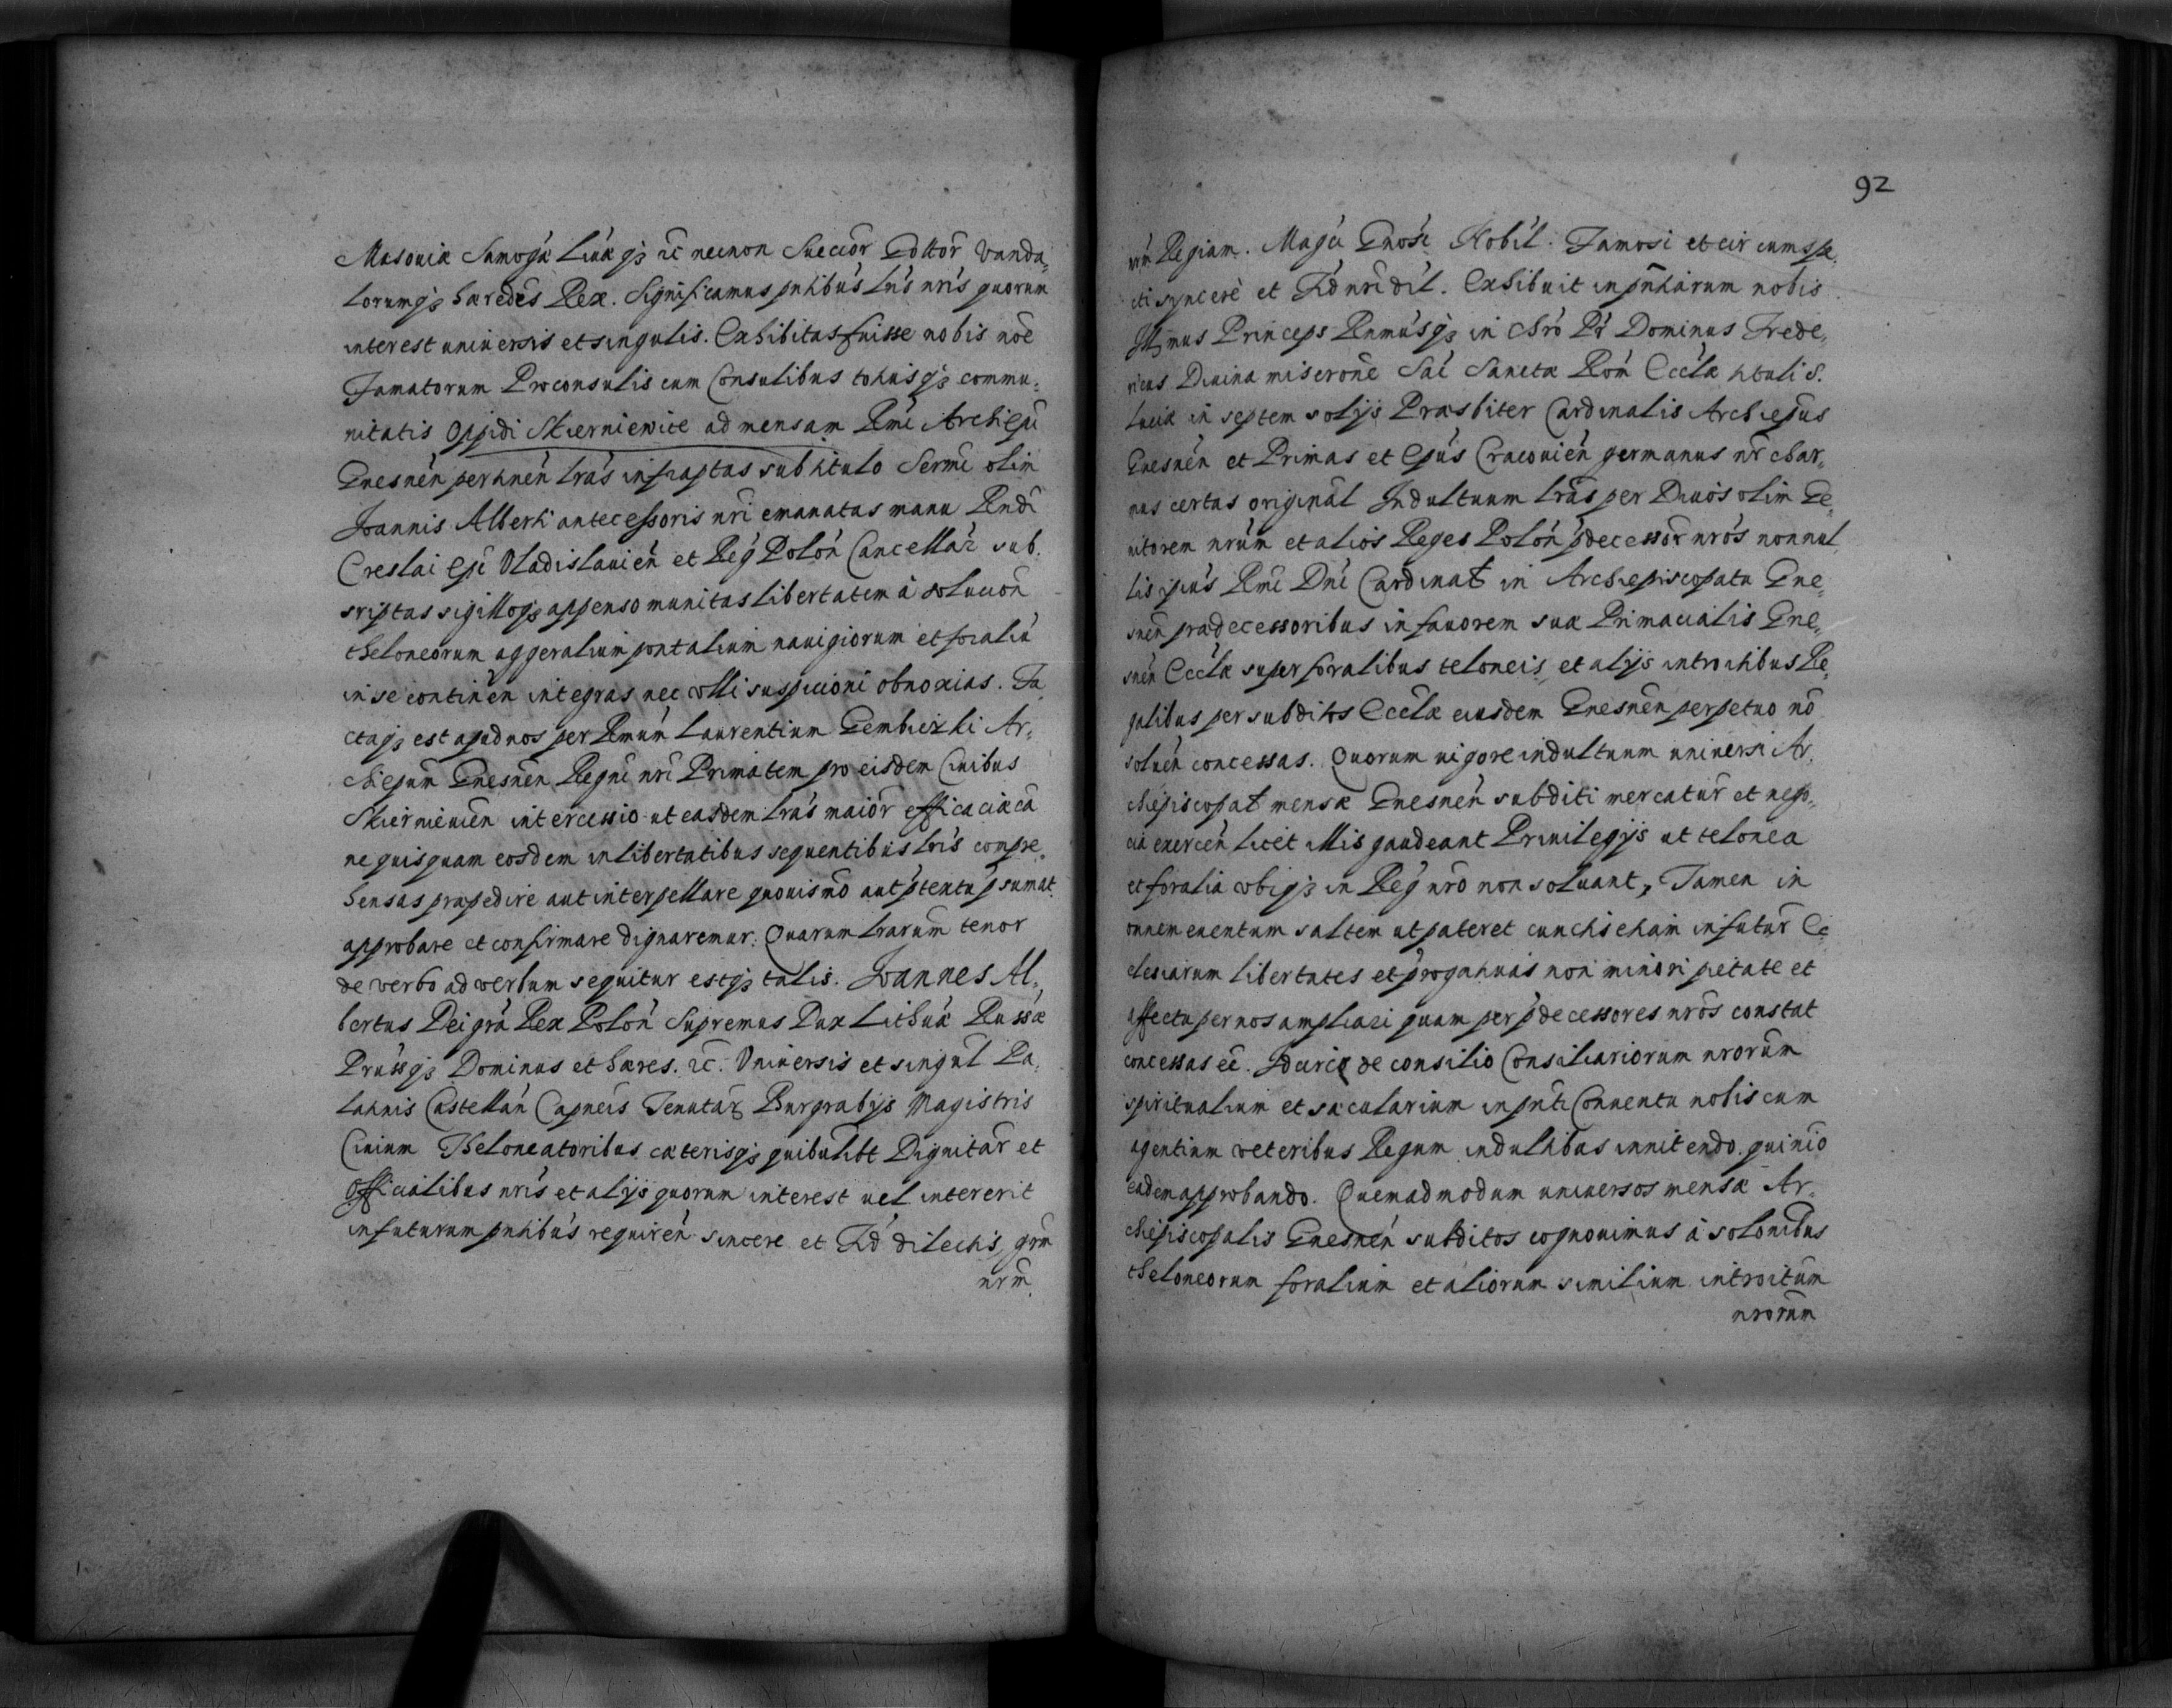 Masouiæ Samog̃a Liuæ q₃ ac̃ necnon Sueccor̃ Gottor̃ Vanda„
lorumq₃ hæredes̃ Rex. Significamus pñtibus l̃ris nr̃is quorum
interest uniuersis et singulis. Exhibitas fuisse nobis nõe
Famatorum Proconsulis cum Consulibus totiusq₃ commu„
nitatis Oppidi Skierniewice ad mensam Rmi Archiepĩ
Gnesnen̄ pertinen̄ lrãs infraptas sub titulo Sermĩ olim
Joannis Alberti antecessoris nr̃i emanatas manu Rndĩ
Creslai Epĩ Vladislauien̄ et Reg̃ Polon̄ Cancellar̃ sub.
sriptas sigilloq₃ appenso munitas libertatem à solucion̄
theloneorum aggeralium pontalium nauigiorum et foraliũ
in se continen̄ integras nec vlli suspicioni obnoxias. Fa„
ctaq₃ est apud nos per Rmum̃ Laurentium Gembiczki Ar„
chiepum̃ Gnesnen̄ Regni nr̃i Primatem pro eisdem Ciuibus
Skierniewien̄ intercessio ut easdem lrãs maior̃ efficaciæ cã
ne quisquam eosdem in libertatibus sequentibus l̃ris compre„
hensas præpedire aut interpellare quouismõ aut p̃textu p̃sumat
approbare et confirmare dignaremur. Quarum lrarum̃ tenor
de verbo ad verbum sequitur estq₃ talis. Joannes Al„
bertus Dei grã Rex Polon̄ Supremus Dux Lithuæ̃ Russæ
Prussq₃ Dominus et hæres. ac̃. Vniuersis et singul̃ Pa„
latinis Castellan̄ Capneis̃ Tenutar̃ Burgrabijs Magistris
Ciuium Theloneatoribus cæterisq₃ quibuslibt̃ Dignitar̃ et
Officialibus nr̃is et alijs quorum interest uel intererit
in futurum pñtibus requiren̄ sincere et Fid̃ dilectis grãm
nrm̃.
92
nr̃m Regiam. Mag̃ci Gnosĩ Nobil̃. Famosi et circumspe„
cti syncere et Fid̃ nr̃i dil̃. Exhibuit in pñtiarum nobis
Illm̃us Princeps Rmusq̃₃ in Chrõ Pr̃ Dominus Frede„
ricus Diuina miseronẽ Sac̃ Sanctæ Rom̃ Ecclæ̃ tituli S.
Luciæ in septem solijs Præsbiter Cardinalis Archiepũs
Gnesnen̄ et Primas et Epũs Cracouien̄ germanus nr̃ char„
nus certas original̃ Indultuum lrãs per Diuos̃ olim Ge„
nitorem nrũm et alios Reges Polon̄ p̃decessor̃ nros̃ nonnul„
lis ipiũs Rmĩ Dnĩ Cardinal̃ in Archiepiscopatu Gne„
snen̄ prædecessoribus in fauorem suæ Primacialis Gne„
snen̄ Ecclæ̃ super foralibus teloneis, et alijs introitibus Re„
galibus per subditos Ecclæ̃ eiusdem Gnesnen̄ perpetuo nõ
soluen̄ concessas. Quorum uigore indultuum uniuersi Ar„
chiepiscopal̃ mensæ Gnesnen̄ subditi mercatur̃ et nego„
cia exercen̄ licet illis gaudeant Priuilegijs ut telonea
et foralia vbiq₃ in Reg̃ nrõ non soluant, Tamen in
omnem euentum saltem ut pateret cunctis etiam in futur̃ Ec„
clesiarum libertates et p̃rogatiuas non minori pietate et
affectu per nos ampliari quam per p̃decessores nros̃ constat
concessas eẽ. Idcirco de consilio Consiliariorum nrorũm
spiritualium et sæcularium in pñti Conuentu nobiscum
agentium veteribus Regum indultibus innitendo. quinĩo
eadem approbando. Quemadmodum uniuersos mensæ Ar„
chiepiscopalis Gnesnen̄ subditos cognouimus à solonibus
theloneorum foralium et aliorum similium introitum̃
nrorũm